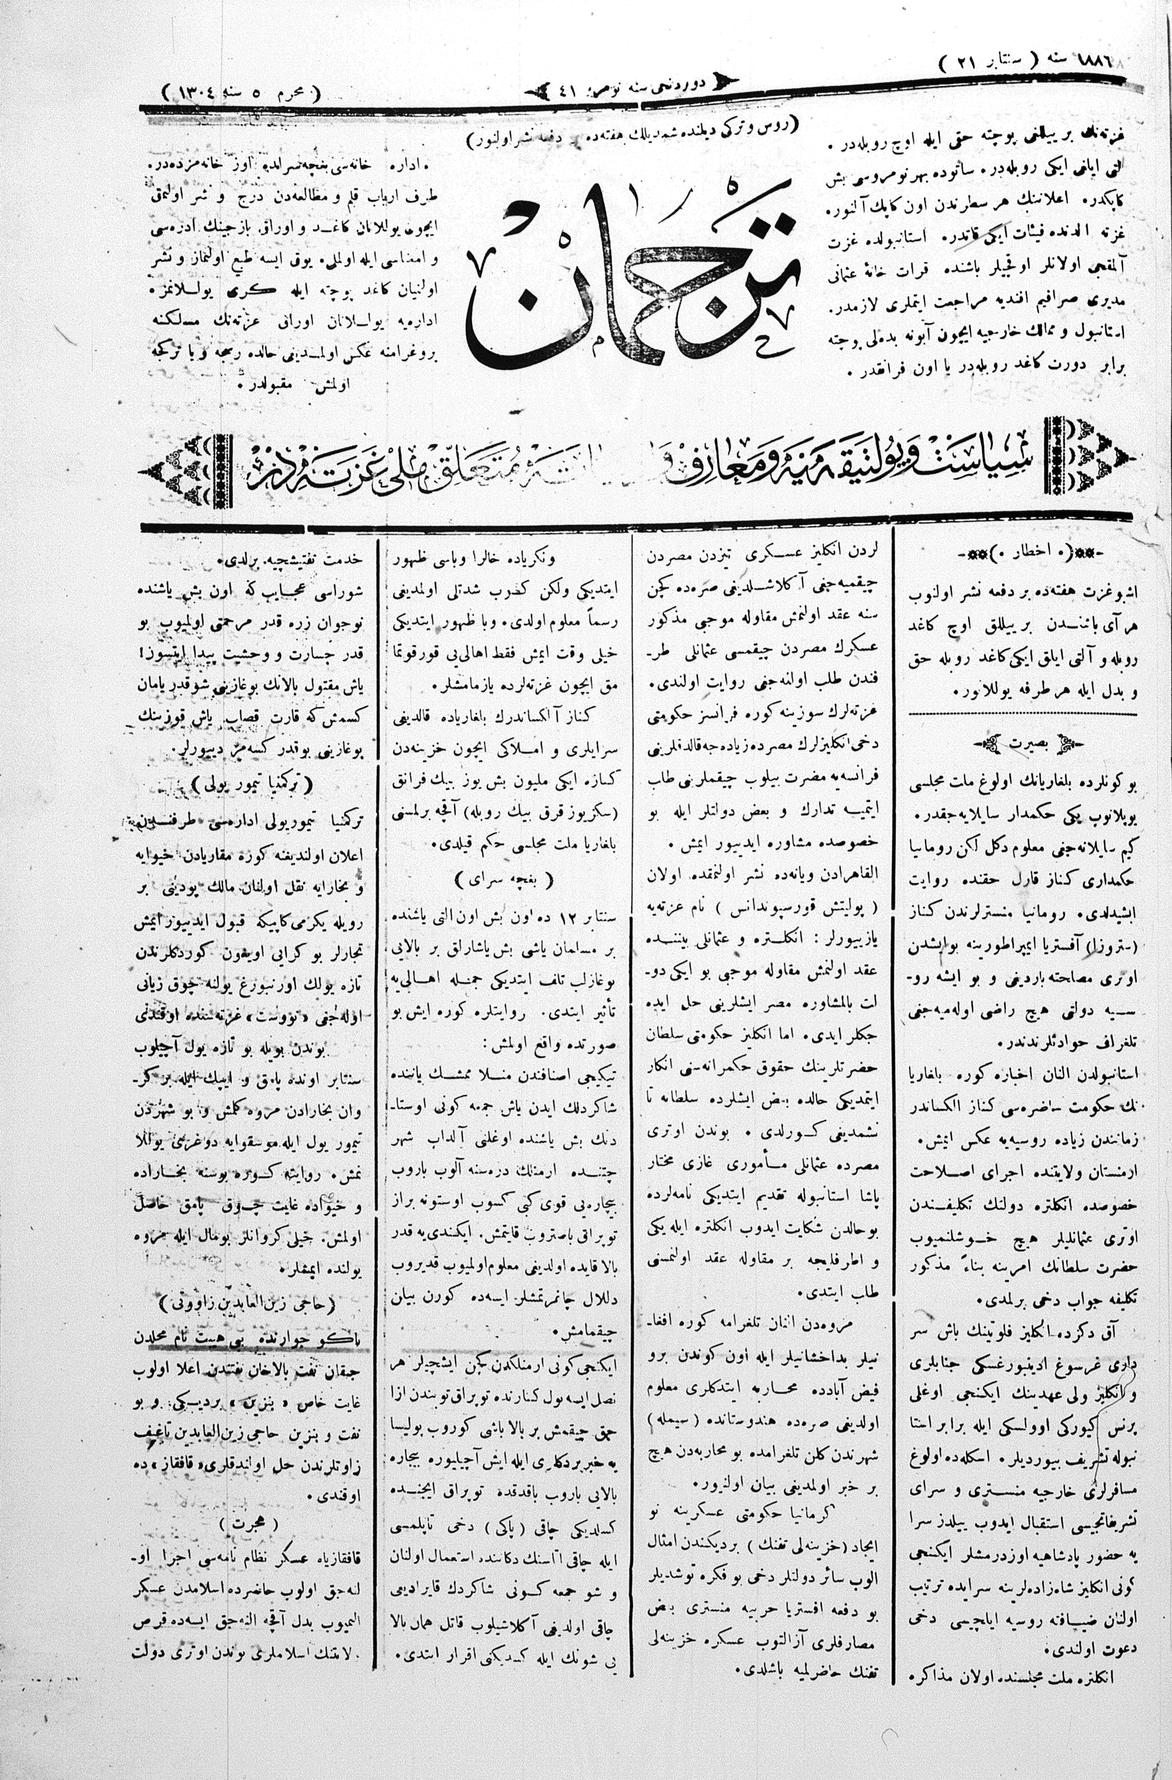 ١٨٨٦ سنه ( سنتابر ٢١ )
دوردنجی سنه نومرو ٤١
( محرم ٥ سنه ١٣٠٤ )
غزته‌نك بر ییللغی پوچته حقی ایله اوچ روبله‌در .
التی ایلغی ایکی روبله‌در. ساتوده بهر نومروسی بش
کاپکدر. اعلاننك هر سطرندن اون کاپك آلنور.
غزته الدنده فیئات ایکی قاتدر. استانبولده غزت
آلمقجی اولانلر اوقجیلر باشنده قرات خانۀ عثمانی
مدیری صرافیم افندیه مراجعت ایتملری لازمدر.
استانبول و ممالك خارجیه ایچون آبونه بدلی پوچته
برابر دورت کاغد روبله‌در یا اون فرانقدر .
(روس و ترکی دیلنده شمدیلك هفته‌ده بر دفعه نشر اولنور)
ترجمان
اداره خانه‌سی بغچه‌سرایده اوز خانه مزده‌در.
طرف ارباب قلم و مطالعه‌دن درج و نشر اولنمق
ایچون یوللانان کاغد و اوراق یازجینك ادره‌سی
و امضاسی ایله اولملی. یوق ایسه طبع اولنماز و نشر
اولنیان کاغد پوچته ایله کری یوللانمز.
اداره‌یه یوللانان اوراق غزته‌نك مسلکنه
پروغرامنه عکس اولمدیغی حالده رسجه و یا ترکجه
اولمش مقبولدر .
سیاست و پولتیقه و معارف متعلق ملی غزته‌در
( اخطار )
اشبو غزت هفته‌ده بر دفعه نشر اولنوب
هر آی باشندن بر ییللق اوچ کاغد
روبله و آلتی ایلق ایکی کاغد روبله حق
و بدل ایله هر طرفه یوللانور.
بصیرت
بو کونلرده بلغاریانك اولوغ ملت مجلسی
یوپلانوب یکی حکمدار سایلایه‌جقدر.
کیم سایلانه‌جغی معلوم دکل لکن رومانیا
حکمداری کناز قارل حقنده روایت
ایشیدلدی. رومانیا منسترلرندن کناز
آفستریا ایمپراطورینه بو ایشدن
اوتری مصاحته باردیغی و بو ایشه رو-
سیه دولتی هیچ راضی اوله‌میه‌جغی
تلغراف حوادثلرندندر.
استانبولدن النان اخباره کوره بلغاریا
نك حکومت حاضره‌سی کناز الکساندر
زمانندن زیاده روسیه‌یه عکس ایمش.
ارمنستان ولایتنده اجرای اصلاحت
خصوصده انکلتره دولتك تکلیفندن
اوتری عثمانلیلر هیچ خوشلنمیوب
حضرت سلطانك امرینه بناءً مذکور
تکلیفه جواب دخی برلمدی.
آق دکزده انکلیز فلوتینك باش سر
داری غرسوغ ادینبورغسکی جنابلری
و انکلیز ولی عهدینك ایکنجی اوغلی
پرنس کیورکی اوولسکی ایله برابر استا
نبوله تشریف بیوردیلر. اسکله‌ده اولوغ
مسافرلری خارجیه منستری و سرای
تشریفاتجیسی استقبال ایدوب ییلدز سرا
یه حضور پادشاهیه اوزدرمشلر ایکنجی
کونی انکلیز شاهزاده‌لرینه سرایده ترتیب
اولنان ضیافته روسیه ایلچیسی دخی
دعوت اولندی.
انکلتره ملت مجلسنده اولان مذاکره
لردن انکلیز عسکری تیزدن مصردن
چیقمیه‌جغی آکلاشلدیغی صره‌ده کچن
سنه عقد اولنمش مقاوله موجبی مذکور
عسکرك مصردن چیقمسی عثمانلی طر-
فندن طلب اولنه‌جغی روایت اولندی.
غزته‌لرك سوزینه کوره فرانسز حکومتی
دخی انکلیزلرك مصرده زیاده‌جه قالدقلرینی
فرانسه‌یه مضرت بیلوب چیقملرینی طلب
ایتمیه تدارك و بعض دولتلر ایله بو
خصوصده مشاوره ایدییور ایمش .
القاهرادن ویانه‌ده نشر اولنمقده اولان
( پولیتش قورسپوندانس ) نام غزته‌یه
یازییورلر : انکلتره و عثمانلی بیننده
عقد اولنمش مقاوله موجبی بو ایکی دو-
لت بالمشاوره مصر ایشلرینی حل ایده
جکلر ایدی. اما انکلیز حکومتی سلطان
حضرتلرینك حقوق حکمرانه‌سنی انکار
ایتمدیکی حالده بعض ایشلرده سلطانه تا
نشمدیغی کورلدی . بوندن اوتری
مصرده عثمانلی مأموری غازی مختار
پاشا استانبوله تقدیم ایتدیکی نامه‌لرده
بو حالدن شکایت ایدوب انکلتره ایله یکی
و اطرفلیجه بر مقاوله عقد اولنمسنی
طلب ایتدی.
مروه‌دن النان تلغرامه کوره افغا-
نیلر بداخشانیلر ایله اون کوندن برو
فیض آبادده محاربه ایتدکلری معلوم
اولدیغی صره‌ده هندوستانده (سیمله)
شهرندن کلن تلغرامده بو محاربه‌دن هیچ
بر خبر اولمدیغی بیان اولنیور.
کرمانیا حکومتی عسکرینه نو
ایجاد (خزینه‌لی تفنك ) بردیکندن امثال
الوب سائر دولتلر دخی بو فکره توشدیلر
بو دفعه افستریا حربیه منستری بعض
مصارفلری آز التوب عسکره خزینه‌لی
تفنك حاضرلمیه باشلدی.
ونکریاده خالرا وباسی ظهور
ایتدیکی ولکن کضرب شدتلی اولمدیغی
رسماً معلوم اولدی. وبا ظهور ایتدیکی
خیلی وقت ایمش فقط اهالی‌یی قورقوتما
مق ایچون غزته‌لرده یازمامشلر.
کناز آلکساندرك بلغاریاده قالدیغی
سرایلری و املاکی ایچون خزینه‌دن
کنازه ایکی ملیون بش یوز بیك فرانق
(سکزیوز قرق بیك روبله) آقچه برلمسنی
بلغاریا ملت مجلسی حکم قیلدی.
( بغچه سرای )
سنتابر ١٢ ده اون بش اون التی یاشنده
بر مسلمان یاشی بش یاشارلق بر بالایی
بوغازلب تلف ایتدیکی جمله اهالی‌یه
تأثیر ایتدی. روایتلره کوره ایش بو
صورتده واقع اولمش:
تیکیجی اصنافندن منلا ممشك یاننده
شاکردلك ایدن یاش جمعه کونی اوستا-
دنك بش یاشنده اوغلنی آلداب شهر
چتنده ارمنلك دره‌سنه آلوب باروب
بیچاره‌یی قوی کبی کسوب اوستونه براز
توپراق باصتروب قایتمش. ایکندی‌یه قدر
بالا قایده اولدیغی معلوم اولمیوب قدیروب
دللال چاغرتمشلر ایسه‌ده کورن بیان
چیقمامش.
ایکنجی کونی ارمنلکدن کچن ایشچیلر هر
نصل ایسه یول کنارنده توپراق توبندن ازا
جق چیقمش بر بالا باشی کوروب پولیسا
یه خبر بردکلری ایله ایش آچیلیوره بیچاره
بالایی باروب باقدقده توپراق ایچنده
کسلدیکی چاقی (پاکی) دخی تاپلمسی
ایله چاقی اتاسنك دکاننده استعمال اولنان
و شو جمعه کونی شاکردك قایرادیمی
چاقی اولدیغی آکلاشیلوب قاتل همان بالا
یی شونك ایله کسدیکنی اقرار ایتدی.
خدمت تفتیشچیه برلدی.
شوراسی عجایب که اون بش یاشنده
نوجوان زره قدر مرحمتی اولمیوب بو
قدر جسارت و وحشیت پیدا ایتسون!
یاش مقتول بالانك بوغازینی شو قدر یامان
کسمش که قارت قصاب یاش قوزینك
بوغازینی بو قدر کسه‌مز دییورلر.
( ترکمنیا تیمور یولی )
ترکمنیا تیموریولی اداره‌سی طرفندن
اعلان اولندیغنه کوره مقاریادن خیوایه
و بخارایه نقل اولنان مالك پودینی بر
روبله یکرمی کاپیکه قبول ایدییور ایمش
تجارلر بو کرایی اویغون کوردکلرندن
تازه یولك اورنبورغ یولنه چوق زیانی
اوله‌جغی «نووست» غزته‌سنده اوقندی
بوندن بویله بو تازه یول آچیلوب
سنتابر اونده پامق و ایپك ایله بر کر-
وان بخارادن مروه کلمش و بو شهردن
تیمور یول ایله موسقوایه دوغری یوللا
نمش. روایته کوره بوسنه بخاراده
و خیواده غایت چوق پامق حاصل
اولمش. خیلی کروانلر بومال ایله مروه
یولنده ایمشلر.
(حاجی زین‌العابدین زاووتی)
باکو جوارنده بی هیبت نام محلدن
چیقان نفت بالاخان نفتندن اعلا اولوب
غایت خاص « بنزین » بردیکی و بو
نفت و بنزین حاجی زین‌العابدین تاغیف
زاوتلرندن حل اولندقلری «قافقاز» ده
اوقندی.
( هجرت )
قافقازیاه عسکر نظام نامه‌سی اجرا او-
لنه‌جق اولوب حاضرده اسلامدن عسکر
النمیوب بدل آقچه النه‌جق ایسه‌ده قرص
ولایتنك اسلاملری بوندن اوتری دولت